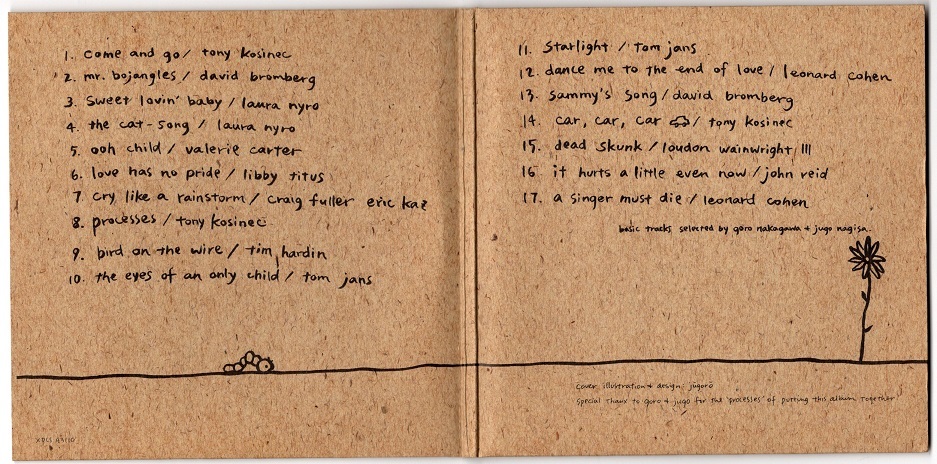 1. come and go / tony kosinec
2. mr. bojangles / david bromberg
3. sweet lovin' baby / laura nyro
4. the cat-song / laura nyro
5. ooh child / valerie carter
6. love has no pride / libby titus
7 cry like a rainstorm / craig fuller eric kaz
8. processes / tony kosinec
9. bird on the wire / tim hardin
10. the eyes of an only child / tom jans
11. starlight / tom jans
12. dance me to the end of love / leonard cohen
13. sammy's song / david bromberg
14. car, car, car / tony kosinec
15. dead skunk / loudon wainwright III
16 it hurts a little even now / john reid
17. a singer must die / leonard cohen
basic tracks selected by goro nakagawa + jugo nagisa.
cover illustration + design: jugoro
special thanx to goro + jugo for the 'processes' of putting this album together